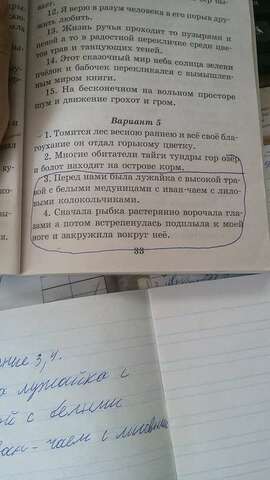 12. Я верю в разум человека в его порыв дру-
жить любить.
13. Жизнь ручья проходит то пузырями и
пеной а то в радостной перекличке среди цве-
тов трав и танцующих теней.
14. Этот сказочный мир неба солнца зелени
пчёлок и бабочек перекликался с вымышлен-
ным миром книги.
15. На бесконечном на вольном просторе
шум и движение грохот и гром.
Вариант 5
1. Томится лес весною раннею и всё своё бла-
гоухание он отдал горькому цветку.
2. Многие обитатели тайги тундры гор озёр
и болот находят на острове корм.
3. Перед нами была лужайка с высокой тра-
вой с белыми медуницами с иван-чаем с лило-
выми колокольчиками.
4. Сначала рыбка растерянно ворочала гла-
зами а потом встрепенулась подплыла к моей
ноге и закружила вокруг неё.
33
ние 3, 4.
лужайка с
ой с белыми
ван-чаем с лиловы